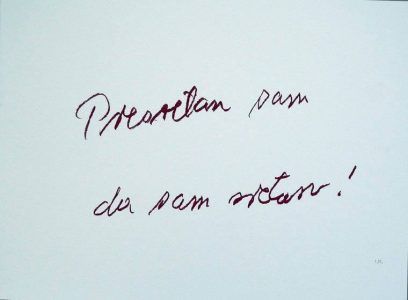 Presretan sam
da sam sretan!